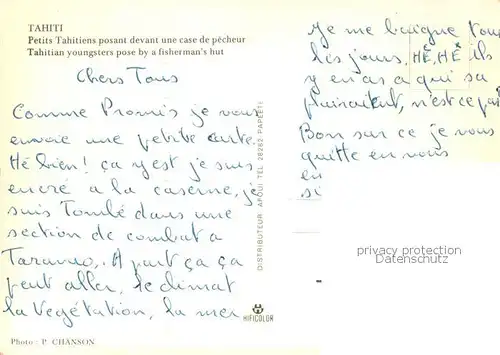 TAHITI
Petits Tahitiens posant devant une case de pêcheur
Tahitian youngsters pose by a fisherman's hut
Chers Tous
Comme Promis je vous
envoie une petite carte.
Hé bien! ça y est je suis
encré a la caserne, je
suis Tombé dans une
section de combat a
Taravao. A part ça ça
peut aller, le climat
la Vegétation, la mer
Photo : P. CHANSON
DISTRIBUTEUR APOUI TEL 28262 PAPEETE
HIFICOLOR
Je me baigne tous
les jours, HÊ, HÊ ils
y en as a qui sa
plairaient, n'est ce pas
Bon sur ce je vous
quitte en vous
en
si
privacy protection
Datenschutz